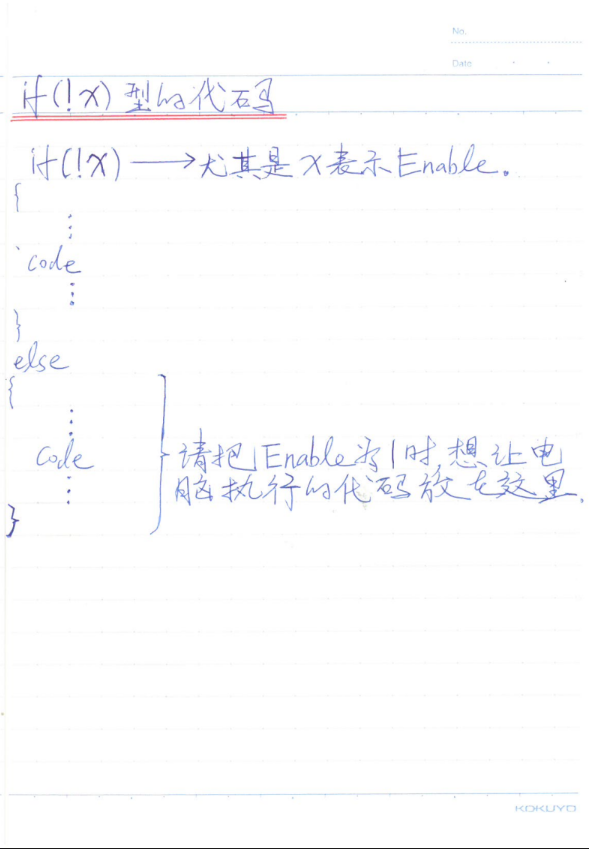 No.
Date
if(!x)型的代码
if(!x)⟶尤其是x表示Enable。
{
⋮
code
⋮
}
else
{
⋮
code
⋮
}
请把Enable为1时,想让电
脑执行的代码放在这里.
KOKUYO